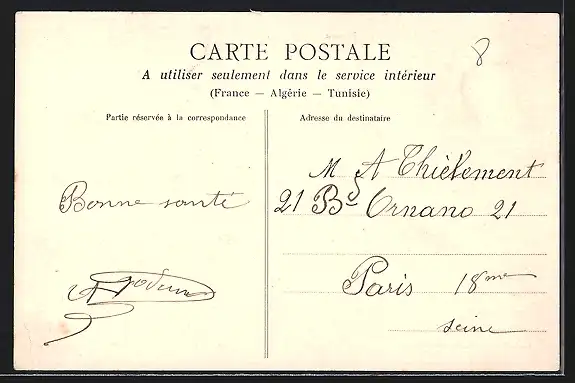 8
CARTE POSTALE
A utiliser seulement dans le service intérieur
(France — Algérie — Tunisie)
Partie réservée à la correspondance
Adresse du destinataire
Bonne santé
M A Thièlement
21 Bd Ornano 21
Paris 18me
Seine